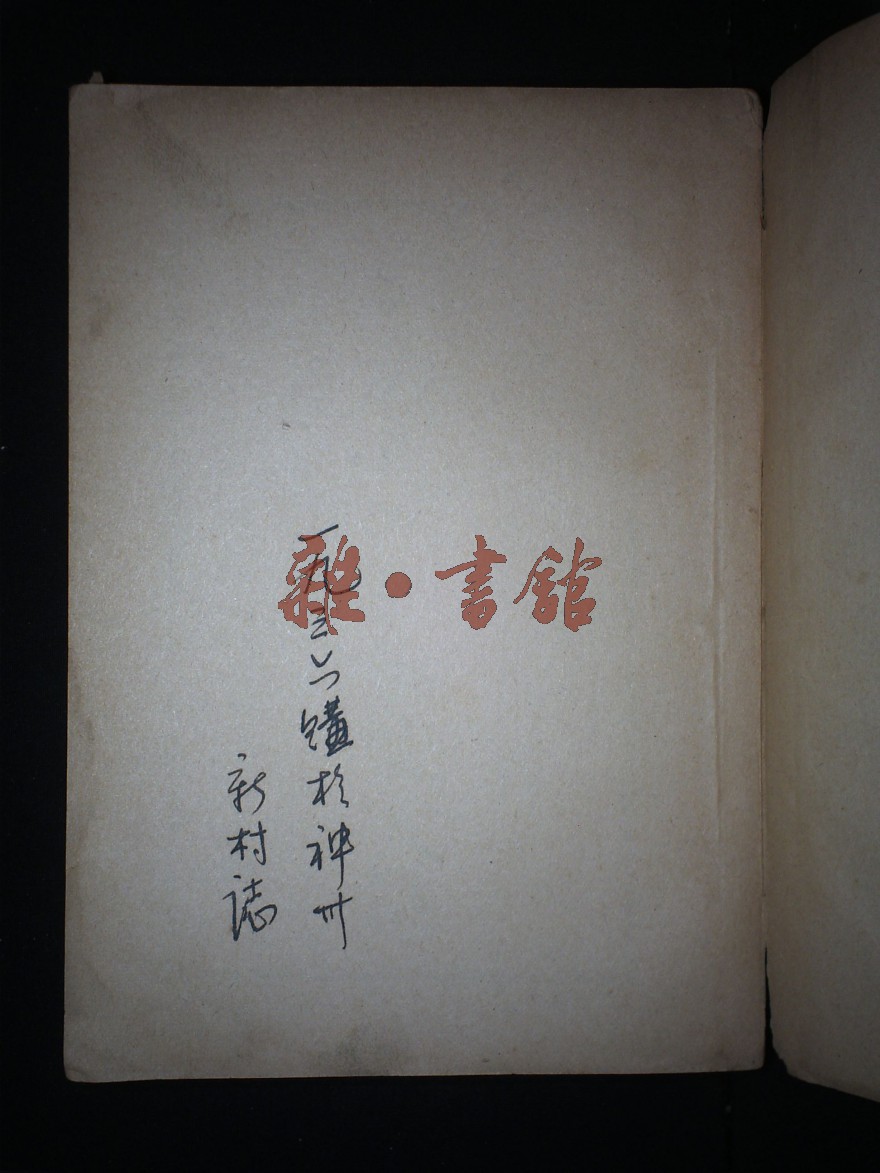 雜·書館
一九三六購於神州
新村誌